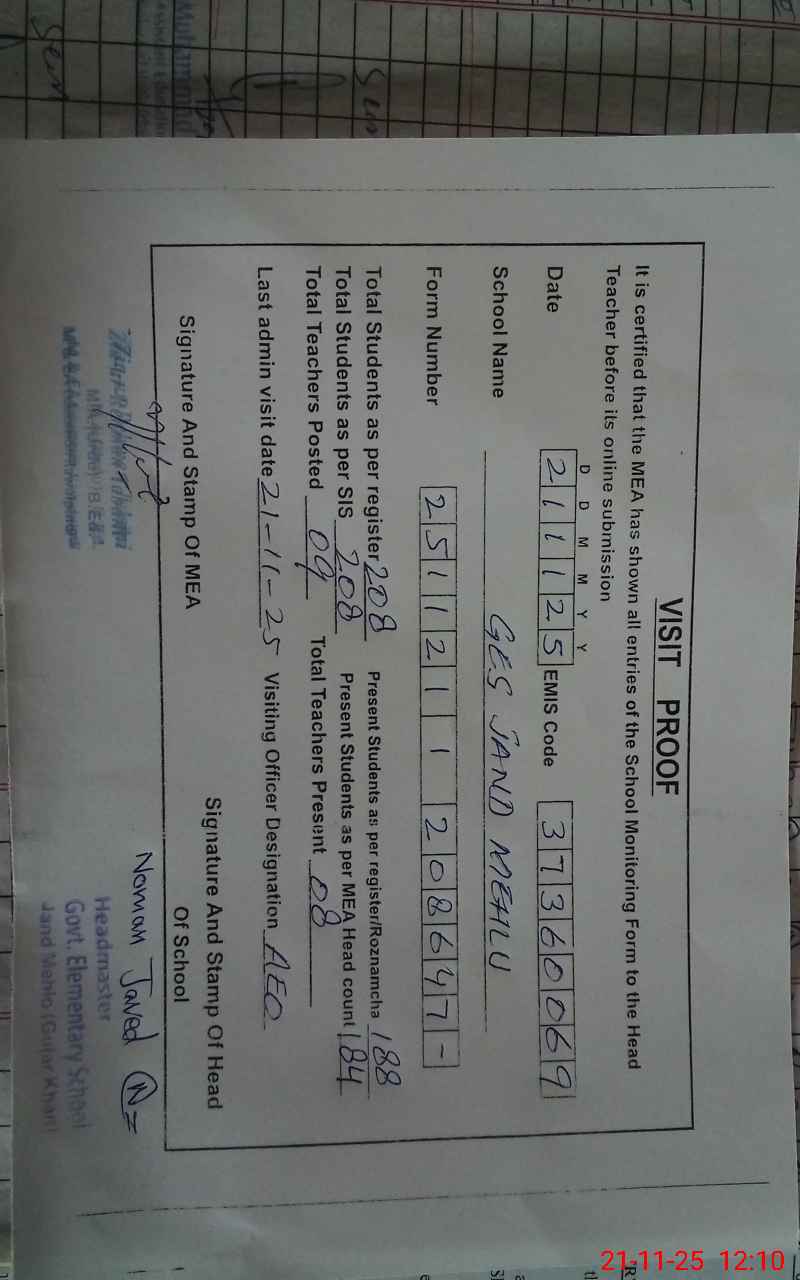 VISIT PROOF
It is certified that the MEA has shown all entries of the School Monitoring Form to the Head
Teacher before its online submission
D D M M Y Y
Date 2 1 1 1 2 5 EMIS Code 3 7 3 6 0 0 6 9
School Name GES JAND MEHLU
Form Number 2 5 1 1 2 1 1 2 0 8 6 4 7 -
Total Students as per register 208 Present Students as per register/Roznamcha 188
Total Students as per SIS 208 Present Students as per MEA Head count 184
Total Teachers Posted 09 Total Teachers Present 08
Last admin visit date 21-11-25 Visiting Officer Designation AEO
Signature And Stamp Of MEA
Signature And Stamp Of Head
Of School
Noman Javed
Headmaster
Govt. Elementary School
Jand Mehlo (Gujar Khan)
21-11-25 12:10